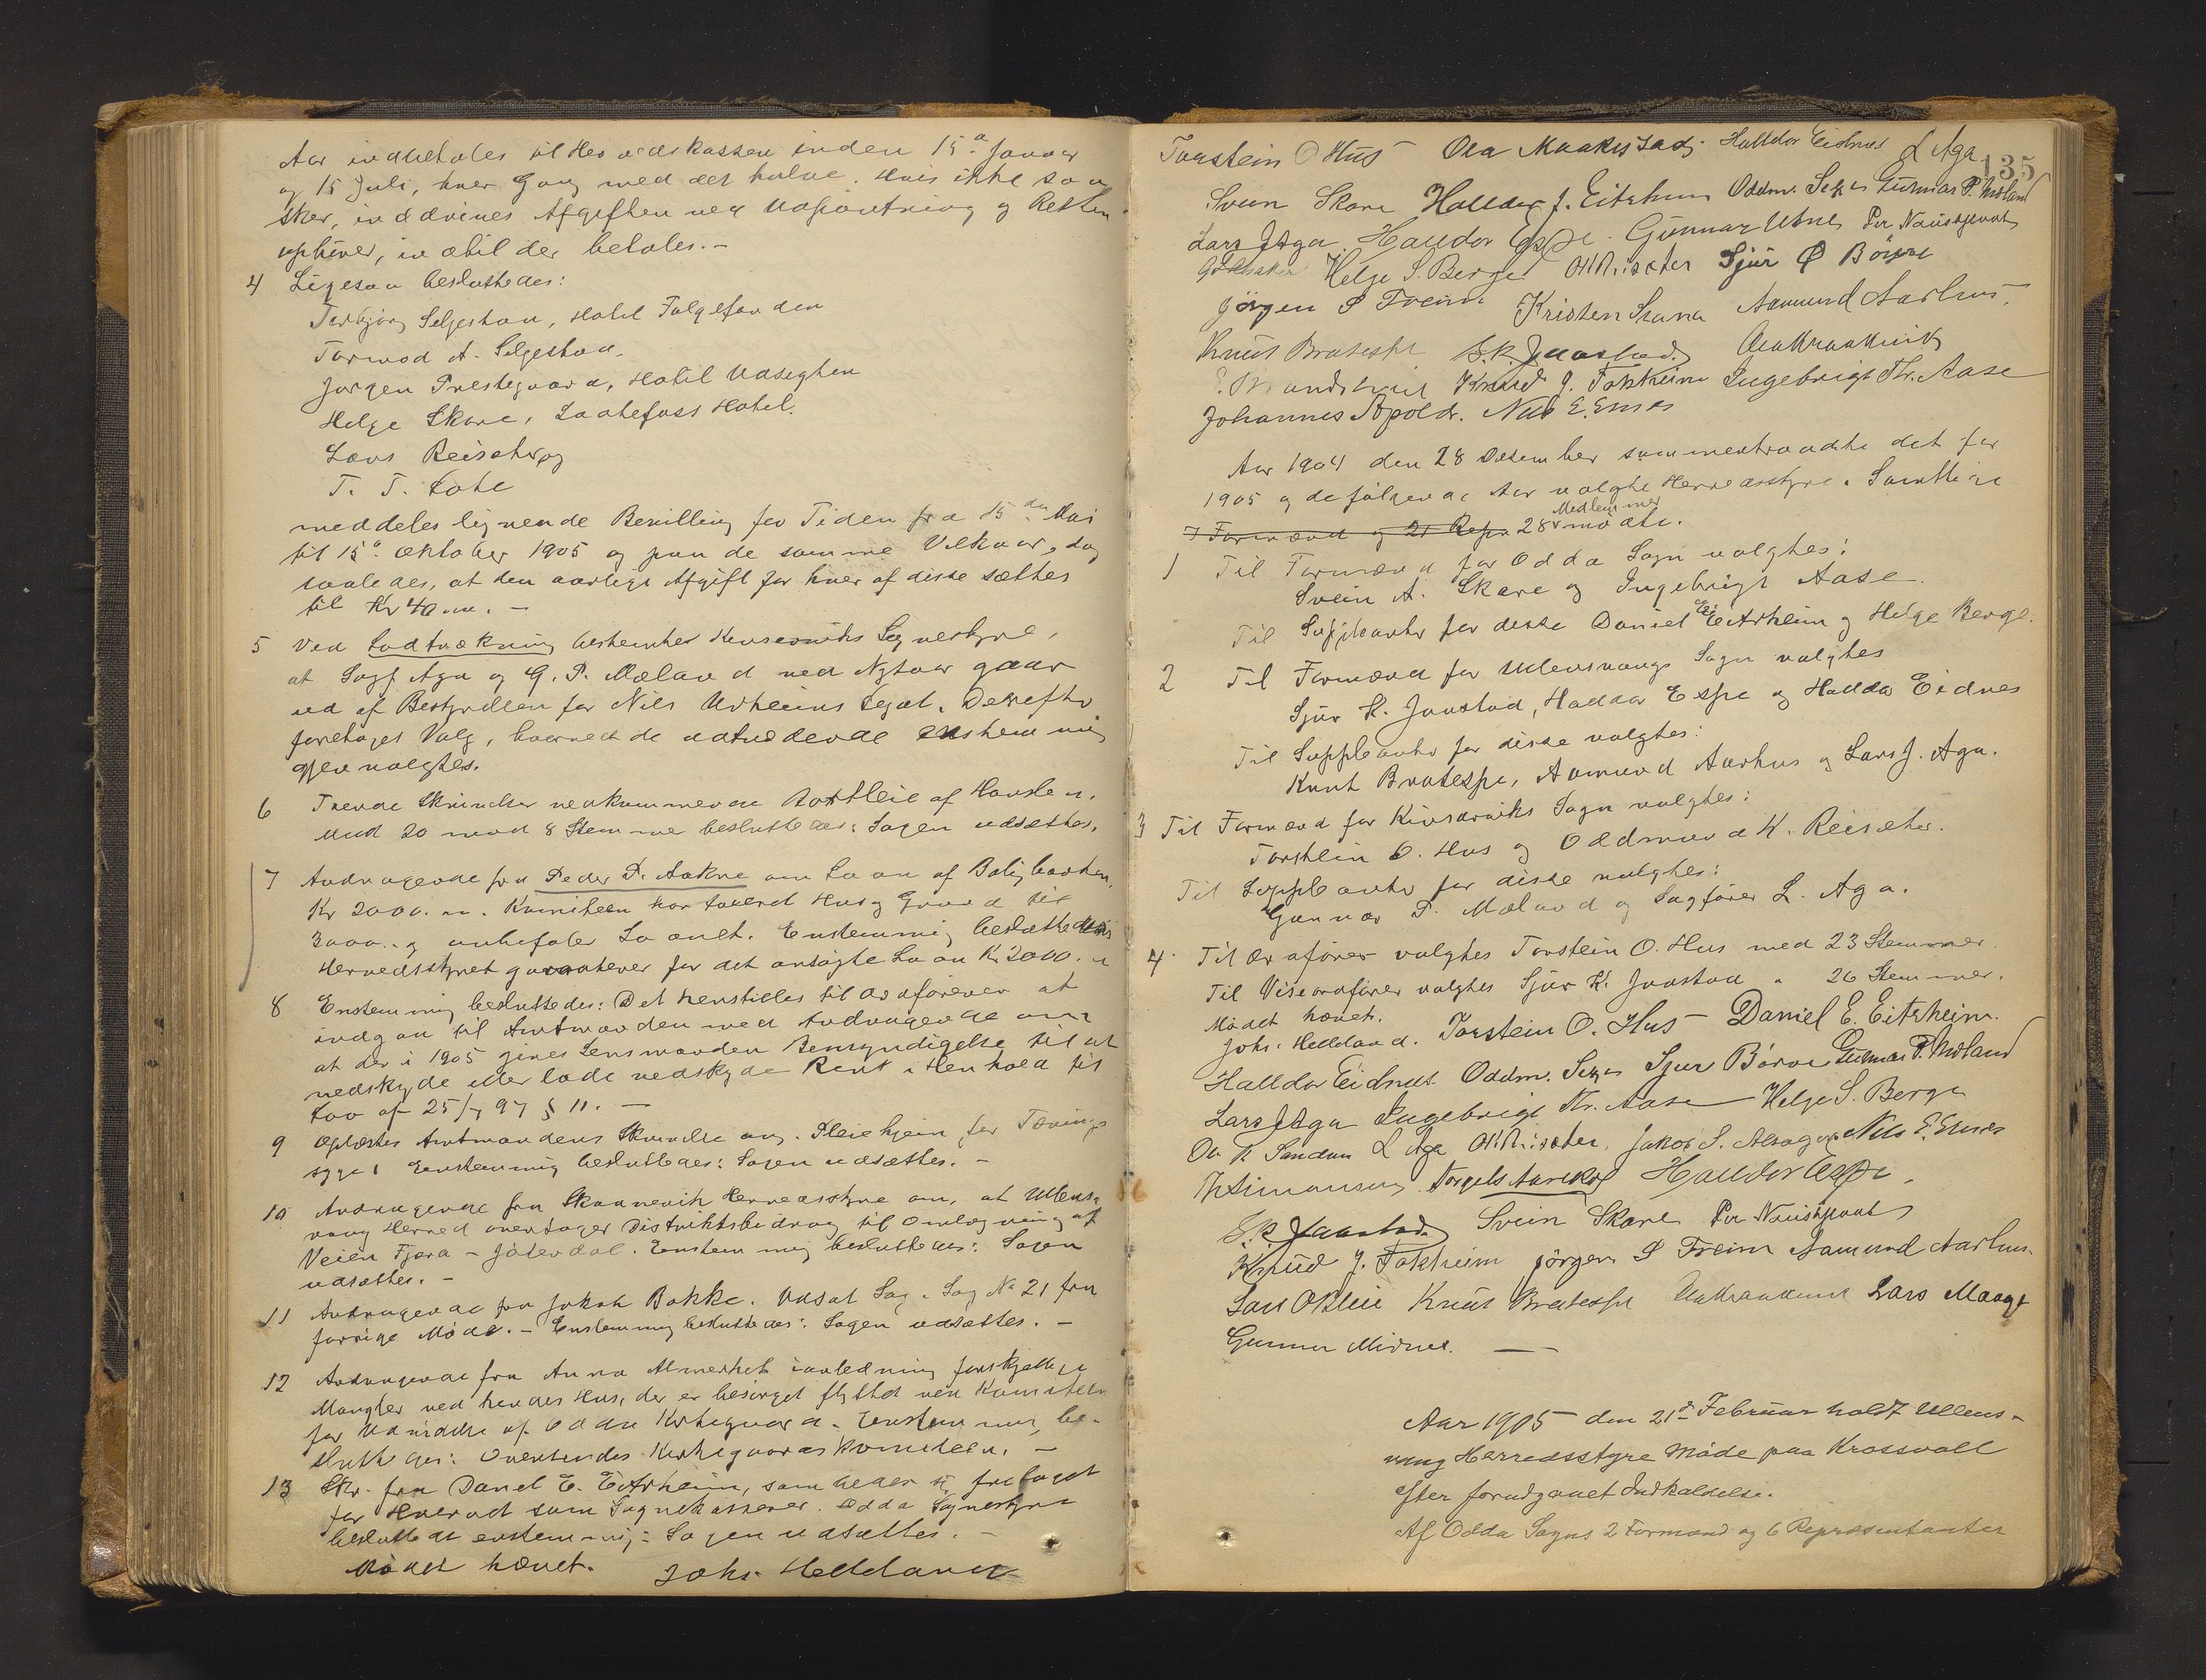 Aar indbetales til Herredskassen inden 15de Januar
og 15 Juli, hver Gang med det halve. Hvis ikke saa
sker, inddrives Afgiften ved Udpantning og Retten
ophører, indtil der betales. –
4 Ligesaa besluttedes:
Torbjørg Seljestad, Hotel Folgefonden
Tormod A. Seljestad.
Jørgen Prestegaard, Hotel Udsigten
Helge Skare, Laatefoss Hotel.
Lars Reisæter og
T. T. Lote
meddeles lignende Bevilling for Tiden fra 15de Mai
til 15de Oktober 1905 og paa de samme Vilkaar, dog
saaledes, at den aarlige Afgift for hver af disse sættes
til Kr 40 . –
5 Ved Lodtrækning bestemtes Kinsarviks Sognestyre,
at Sagf Aga og G. P. Mæland ved Nytaar gaar
ud af Bestyrelsen for Nils Utheims Legat. Derefter
foretoges Valg, hvorved de udtrædende enstemmig
gjenvalgtes.
6 Tvende Skrivelser vedkommende
Med 20 mod 8 Stemmer besluttedes: Sagen udsættes.
7 Andragende fra Peder P. Aakre om Laan af Boligbanken,
Kr 2000. Komiteen har taxeret Hus og Grund til
3000. og anbefaler Laanet. Enstemmig besluttedes:
Herredsstyret garanterer for det ansøgte Laan Kr. 2000.
8 Enstemmig besluttedes: Det henstilles til Ordføreren at
indgaa til Amtmanden med Andragende om
at der i 1905 gives Lensmanden Bemyndigelse til at
nedskyde eller lade nedskyde Ren i Henhold til
Lov af 25/7 97 § 11. –
9 Oplæstes Amtmandens Skrivelse ang. Pleiehjem for Tærings
syge. Enstemmig besluttedes: Sagen udsættes. –
10 Andragende fra Skaanevik Herredsstyre om, at Ullens-
vang Herred overtager Distriktsbidrag til Omlægning af
Veien Fjæra – Jøsendal. Enstemmig besluttedes: Sagen
udsættes. –
11 Andragende fra Jakob Bakke. Udsat Sag. Sag No 21 fra
forrige Møde. – Enstemmig besluttedes: Sagen udsættes. –
12 Andragende fra Anna Almerket i anledning forskjellige
Mangler ved hendes Hus, der er besørget flyttet ved Komiteen
for Udvidelse af Odda Kirkegaard. Enstemmig be-
sluttedes: Oversendes Kirkegaardskomiteen. –
13 Skr. fra Daniel E. Eitrheim, som beder sig fritaget
for Hvervet som Sognekasserer. Odda Sognestyre
besluttede enstemmig: Sagen udsættes. –
Mødet hævet. Johs. Helleland
135
Torstein O Hus Ola Maakestad. Halldor Eidnes L Aga
Svein Skare Halldor J. Eitrheim Oddm. Sexe Gunnar P. Mæland
Lars J Aga Halldor Espe. Gunnar Utne Per Naustevoll
Helge S. Berge OKReisæter Sjur Børve
Jørgen S Freim Kristen Aamund Aarhus.
Knut Bratespe S.K. Jaastad.
Knud J. Tokheim Ingebrigt Th. Aase
Johannes Apold. Nils E. Ernes
Aar 1904 den 28 Desember sammentraadte det for
1905 og de følgende Aar valgte Herredsstyre. Samtlige
7 Formænd og 21 Repr 28 Medlemmer mødte.
1 Til Formænd for Odda Sogn valgtes:
Svein A. Skare og Ingebrigt Aase.
Til Suppleanter for disse Daniel E. Eitrheim og Helge Berge.
2 Til Formænd for Ullensvangs Sogn valgtes
Sjur K. Jaastad, Halldor Espe og Halldor Eidnes
Til Suppleanter for disse valgtes:
Knut Bratespe, Aamund Aarhus og Lars J. Aga.
3 Til Formænd for Kinsarviks Sogn valgtes:
Torstein O. Hus og Oddmund K. Reisæter.
Til Suppleanter for disse valgtes:
Gunnar P. Mæland og Sagfører L. Aga.
4 Til Ordfører valgtes Torstein O. Hus med 23 Stemmer.
Til Viseordfører valgtes Sjur K. Jaastad " 26 Stemmer.
Mødet hævet.
Johs. Helleland. Torstein O. Hus – Daniel E. Eitrheim.
Halldor Eidnes Oddm. Sexe Sjur Børve Gunnar P. Mæland
Lars J Aga Ingebrigt Th. Aase Helge S. Berge
L Aga OKReisæter. Jakob S. Nils E. Ernes
Halldor Espe.
S.K. Jaastad. Svein Skare Per Naustevoll
Knud J. Tokheim Jørgen S Freim Aamund Aarhus.
Knut Bratespe Lars Maage
Gunnar Midnes. –
Aar 1905 den 21de Februar holdt Ullens-
vang Herredsstyre Møde paa Krossvoll
efter forudgaaet Indkaldelse.
Af Odda Sogns 2 Formænd og 6 Repræsentanter